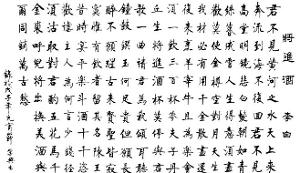 將進酒 李白
君不見黃河之水天上來
奔流到海不復回君不見
高堂明鏡悲白髮朝如青
絲暮成雪人生得意須盡
歡莫使金樽空對月天生
我材必有用千金散盡還
復來烹羊宰牛且為樂會
須一飲三百杯岑夫子丹
丘生將進酒君莫停與君
歌一曲請君為我傾耳聽
鐘鼓饌玉何足貴但願長
醉不願醒古來聖賢皆寂
寞惟有飲者留其名陳王
昔時宴平樂斗酒十千恣
歡謔主人何為言少錢徑
須沽取對君酌五花馬千
金裘呼兒將出換美酒與
爾同銷萬古愁